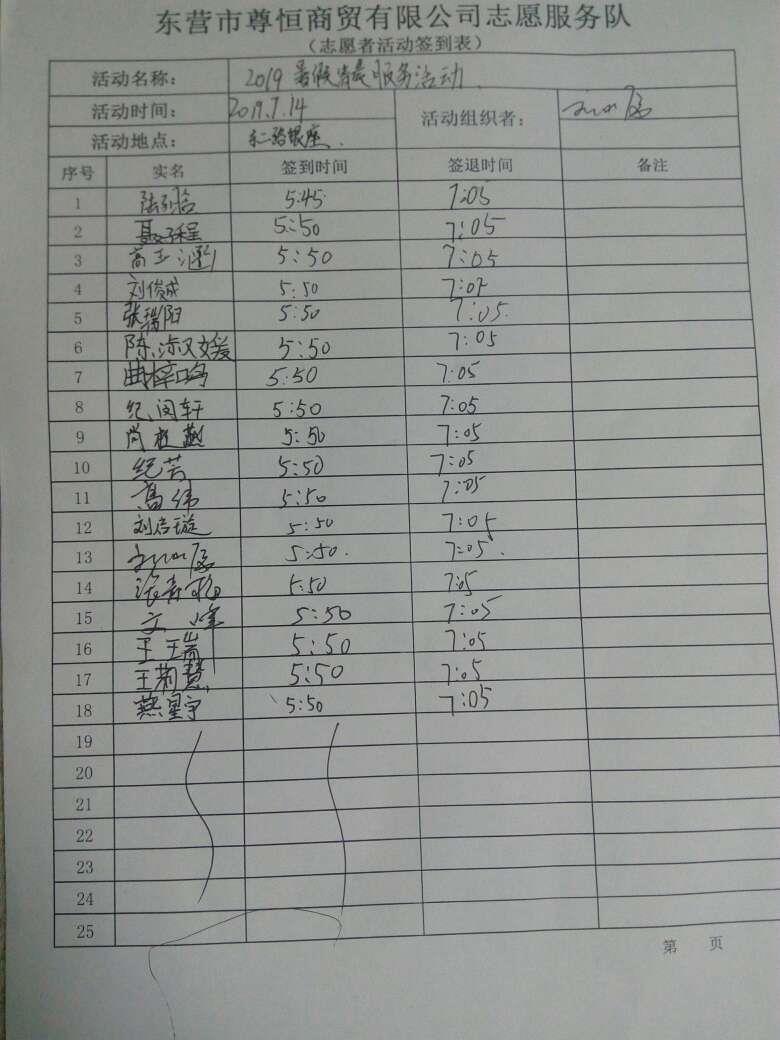 东营市尊恒商贸有限公司志愿服务队
（志愿者活动签到表）
活动名称： 2019 暑假清晨服务活动
活动时间： 2019.7.14 活动组织者：
活动地点： 东二路银座.
序号 实名 签到时间 签退时间 备注
1 5:45 7:05
2 聂子程 5:50 7:05
3 高玉涵 5:50 7:05
4 刘俊成 5:50 7:05
5 张瑞阳 5:50 7:05.
6 陈 5:50 7:05
7 曲梓鸣 5:50 7:05
8 纪闵轩 5:50 7:05
9 尚 5:50 7:05
10 纪芳 5:50 7:05
11 高伟 5:50 7:05
12 刘启璇 5:50 7:05
13 5:50. 7:05.
14 5:50 7:05
15 文峰 5:50 7:05
16 王瑞 5:50 7:05
17 王莉慧 5:50 7:05
18 燕星宇 5:50 7:05
19
20
21
22
23
24
25
第 页